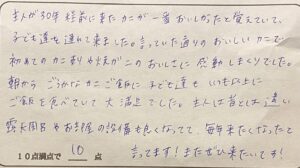 主人が30年程前に来たカニが一番おいしかったと覚えていて、
子ども達を連れて来ました。言っていた通りのおいしいカニで
初めてのカニ刺しや焼ガニのおいしさに感動しまくりでした。
朝から ごうかなカニご飯に子ども達も いつも以上に
ご飯を食べていて 大満足でした。主人は昔とは違い
露天風呂やお部屋の設備も良くなってて、毎年来たくなったと
言ってます！またぜひ来たいです！
10点満点で 10 点